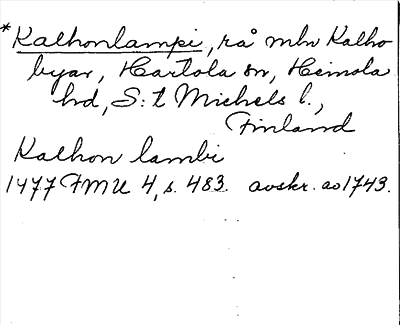 *Kalhonlampi, rå mln Kalho
byar, Hartola sn, Heinola
hd, S:t Michels l.,
Finland
Kalhon lambi
1477 FMU 4, s. 483. avskr. ao 1743.